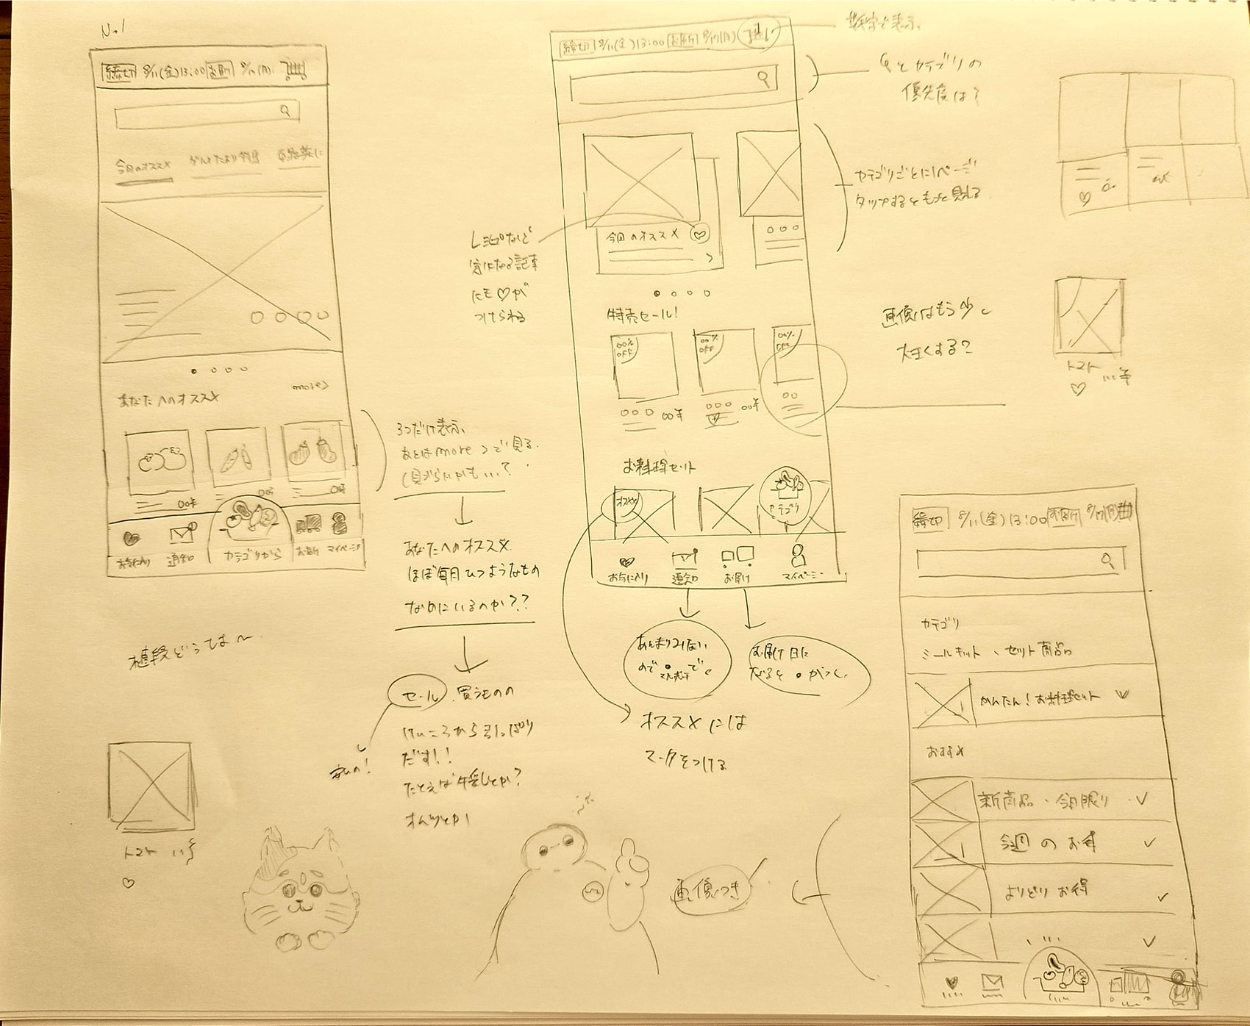 No.1
締切 8/11(金)13:00 お届け 8/17(月)
今月のオススメ
あなたへのオススメ
more>
00円
00円
00円
お気に入り
通知
カテゴリから
お届け
マイページ
3つだけ表示、
あとはmore >で見る。
あなたへのオススメ
ほぼ毎月ひつようなもの
なのにいるのか??
セール
買うものの
だす!!
たとえば牛乳とか?
オムツとか
安いの!
値段どうしよ〜
トマト
レシピなど
気になる記事
にも♡が
つけられる
締切 8/11(金)13:00 お届け 8/17(月)
数字で表示、
とカテゴリの
優先度は?
カテゴリごとに1ページ
タップするともっと見れる
今月のオススメ
特売セール!
00% OFF
00% OFF
00% OFF
00円
00円
画像はもう少し
大きくする?
トマト
お料理セット
オススメ
カテゴリ
お気に入り
通知
お届け
マイページ
あんまりみない
ので
お届け日に
なると●がつく
オススメには
マークをつける
画像つき
締切 8/11(金)13:00 お届け 8/17(月)
カテゴリ
ミールキット、セット商品
かんたん!お料理セット
おすすめ
新商品・今月限り
今週のお得
よりどりお得